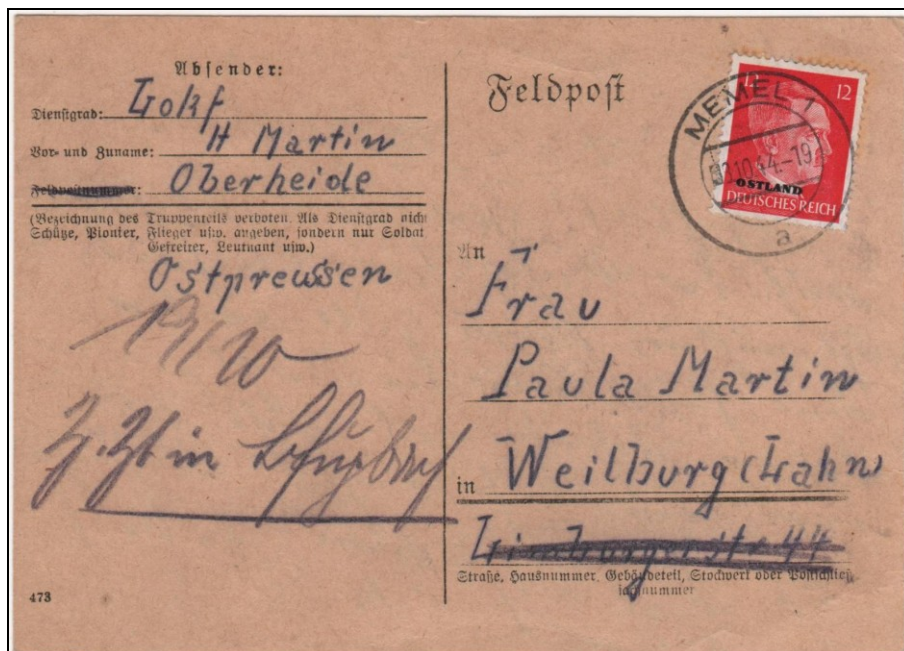 Absender:
Dienstgrad: Lokf
Vor- und Zuname: H Martin
Feldpostnummer: Oberheide
(Bezeichnung des Truppenteils verboten. Als Dienstgrad nich
Schütze, Pionier, Flieger usw. angeben, sondern nur Soldat
Gefreiter, Leutnant usw.)
Ostpreussen
19/10
z. Zt in
473
Feldpost
MEMEL 1
10.44.-19
a
12 12
OSTLAND
DEUTSCHES REICH
An
Frau
Paula Martin
in Weilburg (Lahn)
Limburgerstr 44
Straße, Hausnummer, Gebäudeteil, Stockwerk oder Postschließ
fachnummer